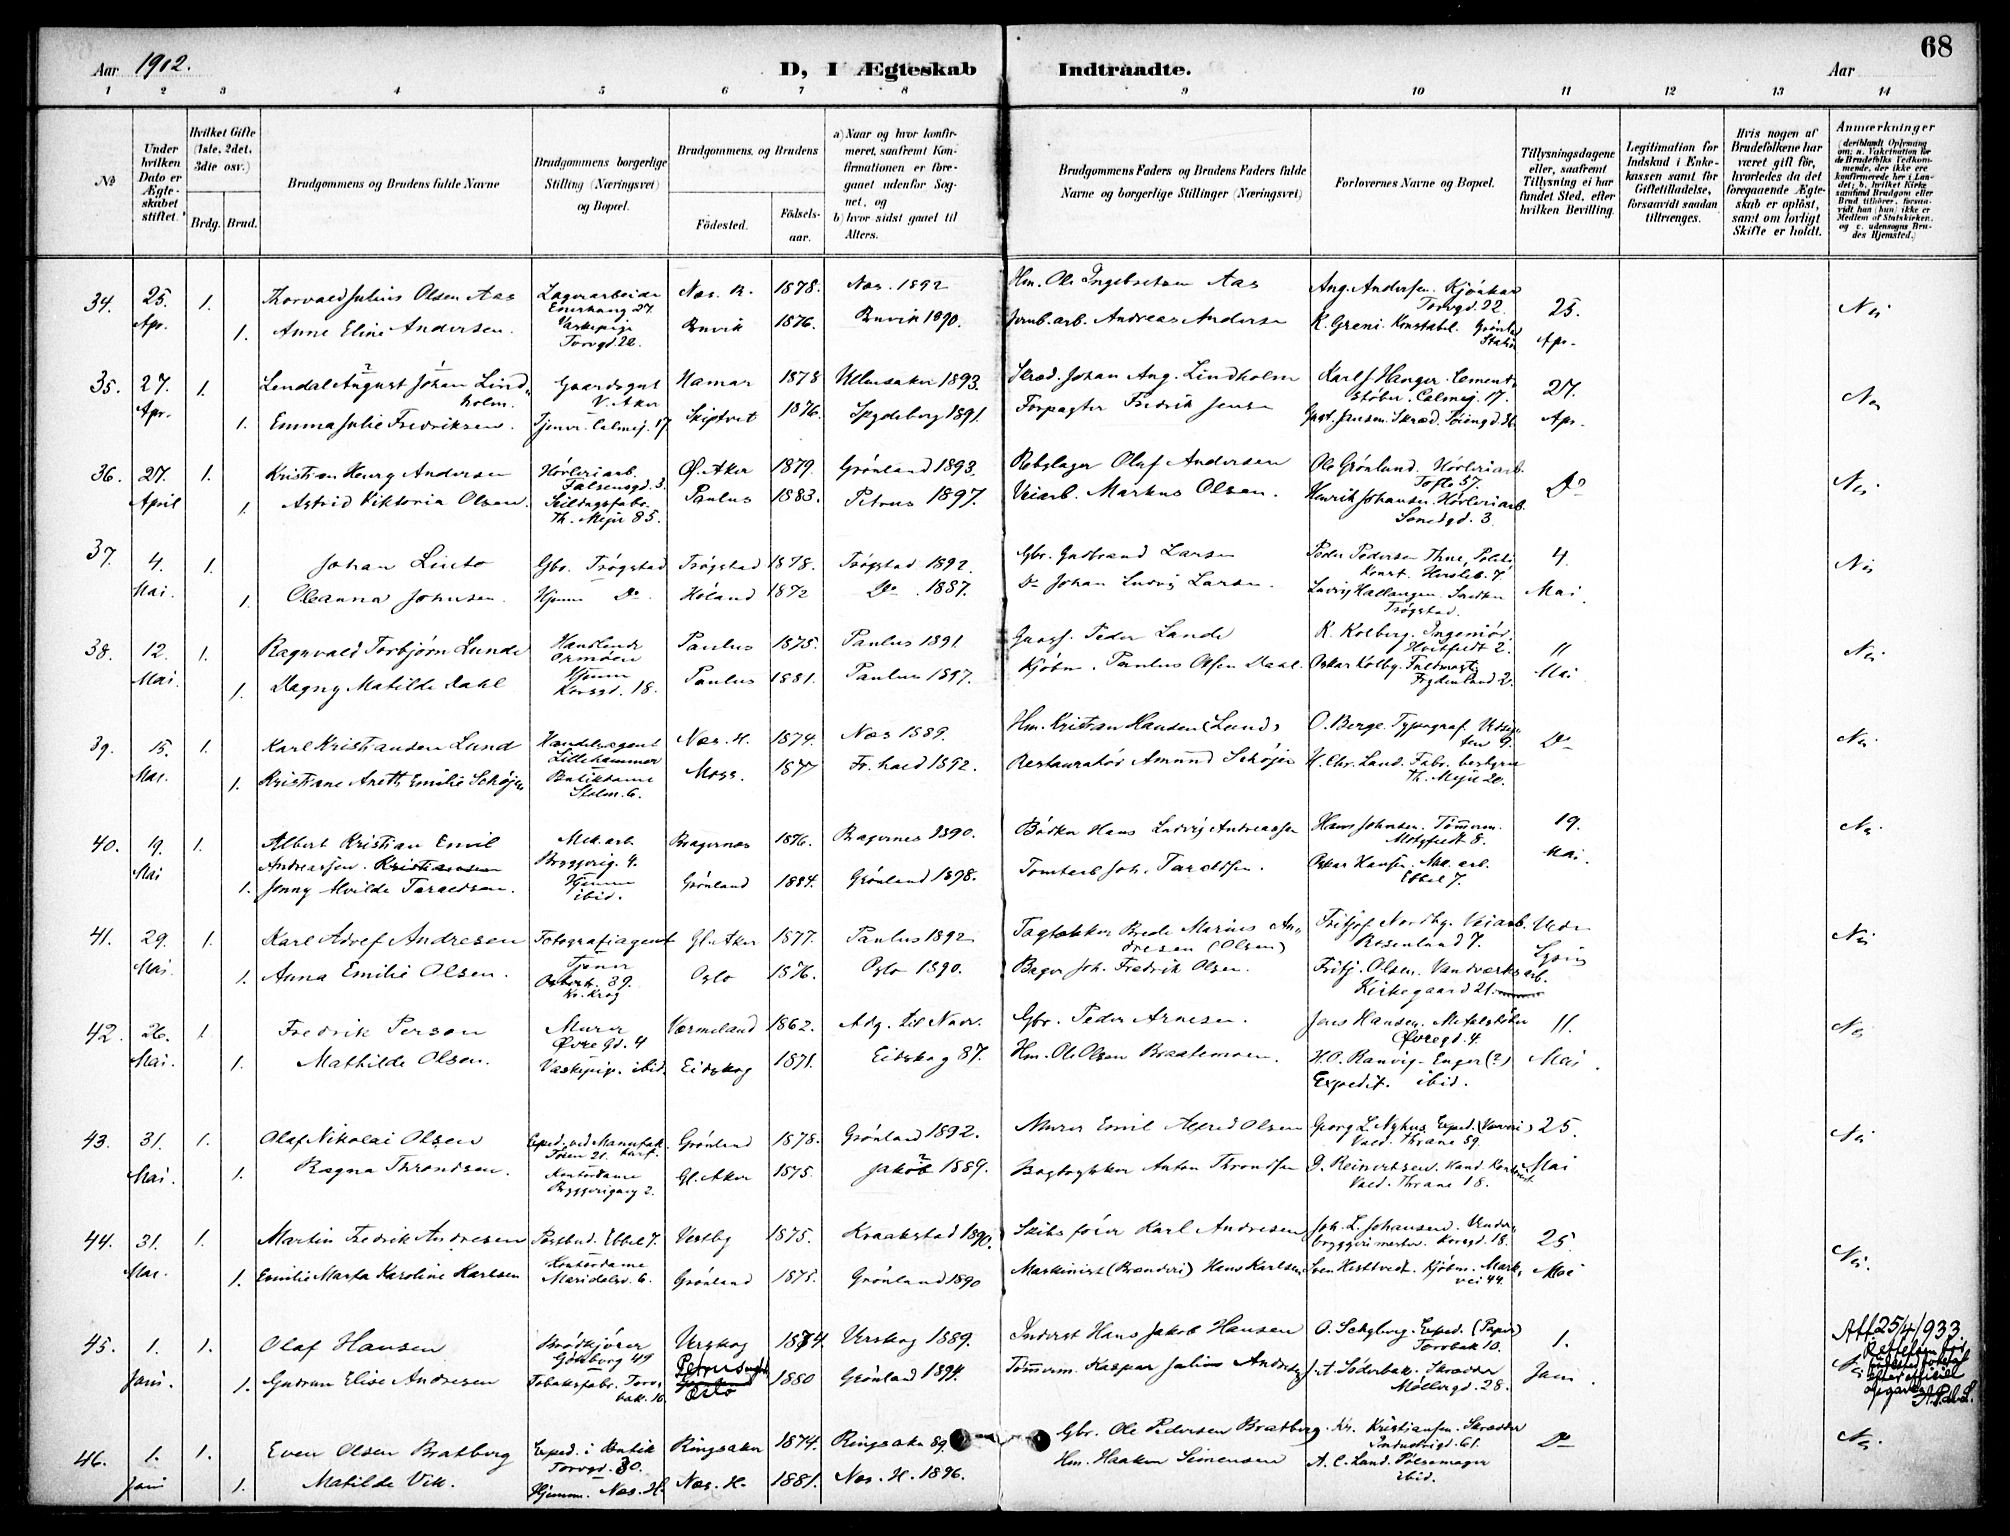 Aar 1902.
D, I Ægteskab Indtraadte.
Aar
68
1 2 3 4 5 6 7 8 9 10 11 12 13 14
No
Under hvilken Dato er Ægteskabet stiftet.
Hvilket Gifte (1ste, 2det, 3die osv.)
Brdg. Brud.
Brudgommens og Brudens fulde Navne
Brudgommens borgerlige Stilling (Næringsvei) og Bopæl.
Brudgommens, og Brudens
Födested.
Födselsaar.
a) Naar og hvor konfirmeret, saafremt Konfirmationen er foregaaet udenfor Sognet, og
b) hvor sidst gaaet til Alters.
Brudgommens Faders og Brudens Faders fulde Navne og borgerlige Stillinger (Næringsvei)
Forlovernes Navne og Bopæl.
Tillysningsdagene eller, saafremt Tillysning ei har fundet Sted, efter hvilken Bevilling.
Legitimation for Indskud i Enkekassen samt for Giftetilladelse, forsaavidt saadan tiltrænges.
Hvis nogen af Brudefolkene har været gift för, hvorledes da det foregaaende Ægteskab er oplöst, samt om lovligt Skifte er holdt.
Anmærkninger (deriblandt Oplysning om: a. Vakcination for de Brudefolks Vedkommende, der ikke ere konfirmerede her i Landet; b. hvilket Kirkesamfund Brudgom eller Brud tilhörer, forsaavidt han (hun) ikke er Medlem af Statskirken, og c. udensogns Brudes Hjemsted.)
34. 25. 1. Thorvald Julius Olsen Aas Lagerarbeider Enerhaug 27. Næs. R. 1878. Næs. 1892 Hm. Ole Ingebretsen Aas Aug. Andersen Torvgd. 22 25. Nei
Apr. 1. Anne Eline Andersen. Vaskepige Torvgd. 22 Envik 1876. Envik 1890. Jernb.arb. Andreas Andersen K. Greni. Konstabel. Grønlad Station Apr.
35. 27. 1. Lendal August Johan Lindholm. Gaardsgut V. Aker Hamar 1878 Ullensaker 1893. Skræd. Johan Aug. Lindholm Karl J. Hanger. Cementstøber. Calmej. 17. 27. Nei
Apr. 1. Emma Julie Fredriksen. Tjener. Calmej. 17 Skiptvet 1876. Spydeberg 1891. Forpagter Fredrik Jensen Gust. Jansen. Skræd. Tøiengd. 36 Apr.
36. 27. 1. Kristian Henry Andersen Høvleriarb. Falsensgd. 3. Ø. Aker 1879. Grønland 1893. Rebslager Olaf Andersen Ole Grønlund. Høvleriarb. Tofte 57. Do Nei
April 1. Astrid Viktoria Olsen. Th. Mejer 85. Paulus 1883. Petrus 1897. Veiarb. Markus Olsen. Henrik Johansen Høvleriarb. 3.
37. 4. 1. Johan Linto Gbr. Trøgstad Trøgstad 1878. Trøgstad 1892. Gbr. Gudbrand Larsen Peder Pedersen Thue, Politikonst. Hersleb. 7 4 Nei
Mai. 1. Oleanna Johnsen. Hjemme Do Høland 1872 Do. 1887. Do Johan Ludvig Larsen. Ludvig Hallangen. Trøgstad. Mai.
38. 12. 1. Ragnvald Torbjørn Lunde Handlende Ormøen Paulus 1875. Paulus 1891 Peder Lande K. Kolberg. Ingeniør. Hvitfeldt 2. 11 Nei
Mai. 1. Dagny Matilde Dahl Hjemme Korsgd. 18. Paulus 1881. Paulus 1897. Kjøbm. Paulus Olsen Daal. Oskar Kolbg. Fuldmægtig Frydenlund 2. Mai
39. 15. 1. Karl Kristiansen Lund Handelsagent Lillehammer Næs. H. 1874. Næs 1889. Hm. Kristian Hansen (Lund) O. Berge Typograf. 9. Do Nei
Mai. 1. Kristiane Anette Emilie Schøjen Butikdame Stolm. 6. Moss. 1877 Fr. hald 1892. Restauratør Amund Schøjen H. Chr. Land. Fabr. bestyrer Th. Mejer 20.
40. 19. 1. Albert Kristian Emil Andreassen. Kristiansen Mek. arb. Bryggerig. 4. Bragernes 1876. Bragernes 1890. Bødker Hans Ludvig Andreassen Hans Johnsen. Tømmerm. Motzfeldt 8. 19. Nei
Mai 1. Jenny Alvilde Taraldsen. Hjemme ibid. Grønland 1884. Grønland 1898. Tomtearb Joh. Taraldsen. Oskar Hansen. Ma. arb. Ebbel 7. Mai.
41. 29. 1. Karl Adolf Andresen Fotografiagent Gl. Aker 1877. Paulus 1892 Tagtækker Brede Marius Andresen (Olsen) Fritjof Nordby. Veiarb. Rosenlund 7. Uden Lysn. Nei
Mai. 1. Anna Emilie Olsen. Tjener 39. Kr. Krog Oslo 1876. Oslo 1890. Bager Joh. Fredrik Olsen. Fritj. Olsen. Vandværksarb. Kirkegaard 21.
42. 26. 1. Fredrik Person Murer Øvregd. 4 Værmeland 1862. Adg. til Nadv. Gbr. Peder Arnesen. Jens Hansen. Metalstøber Øvregd. 4 11. Nei
Mai. 1. Mathilde Olsen. Vaskepige. ibid. Eidskog 1871. Eidskog 87. Hm. Ole Olsen Braatemoen. H. O. Ranvig. Enger (?) Expedit. ibid. Mai.
43. 31. 1. Olaf Nikolai Olsen Exped. ved Manufak. Tøien 21. Grønland 1878. Grønland 1892. Murer Emil Alfred Olsen Georg L. Nyhus Exped. (Væveri) Vald. Thrane 59. 25. Nei
Mai. 1. Ragna Throndsen. Kontordame Bryggerigang 2. Gl. Aker 1875. Jakob 1889. Bogtrykker Anton Throndsen D. Reinertsen. Kand. Kontorist Vald. Thrane 18. Mai
44. 31. 1. Martin Fredrik Andresen Postbud. Ebbel 7. Vestby 1875. Kraakstad 1890. Skibsfører Karl Andresen Joh. L. Johansen. Underbryggerimester. Korsgd. 18. 25. Nei.
Mai. 1. Emilie Marta Karoline Karlsen Kontordame Maridalsv. 6. Grønland 1875. Grønland 1890 Maskinist (Brænderi) Hans Karlsen Sven Hesttvedt. Kjøbm. Markvei 44. Mai
45. 1. 1. Olaf Hansen Brødkjører Gøteborg 49 Urskog 1874 Urskog 1889. Inderst Hans Jakob Hansen O. Schyberg. Exped. (Papir) Torvbak 10. 1. Att. 25/4 1933.
Juni. 1. Gudrun Elise Andresen Tobaksfabr. Torvbak. 16. Oslo 1880 Grønland 1894. Tømmerm. Kaspar Julius A. Söderbak. Skræder Møllergd. 28. Juni. Nei
46. 1. 1. Even Olsen Bratberg Exped. i Butik Torvgd. 30. Ringsaker 1874. Ringsaker 89. Gbr. Ole Pedersen Bratberg. Kr. Kristiansen. Skrædder Industrigd. 61. Do Nei.
Juni 1. Matilde Vik. Hjemm. Næs. H. Næs. H. 1881. Næs. H. 1896. Hm. Haakon Simensen A. C. Land. Pølsemager ibid.